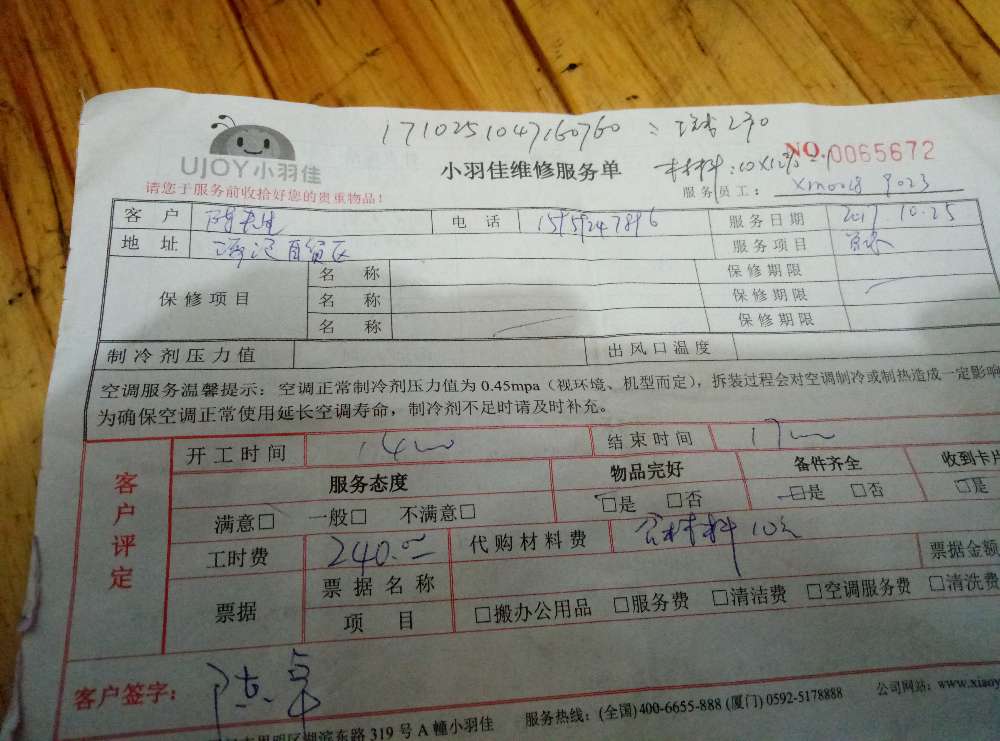 1710251047160760
UJOY小羽佳
小羽佳维修服务单
NO.0065672
请您于服务前收拾好您的贵重物品!
服务员工:
客 户
电 话
服务日期 2017 10.25
地 址
服务项目
保修项目 名 称 保修期限
名 称 保修期限
名 称 保修期限
制冷剂压力值 出风口温度
空调服务温馨提示:空调正常制冷剂压力值为 0.45mpa(视环境、机型而定),拆装过程会对空调制冷或制热造成一定影响
为确保空调正常使用延长空调寿命,制冷剂不足时请及时补充。
客户评定
开工时间 14 结束时间 17
服务态度 物品完好 备件齐全 收到卡片
满意□ 一般□ 不满意□ □是 □否 □是 □否 □是
工时费 240.00 代购材料费 含材料10元 票据金额
票据 票据名称
项 目 □搬办公用品 □服务费 □清洁费 □空调服务费 □清洗费
客户签字:
湖滨东路 319 号 A 幢小羽佳 服务热线:(全国)400-6655-888 (厦门) 0592-5178888 公司网站:www.xiaoy